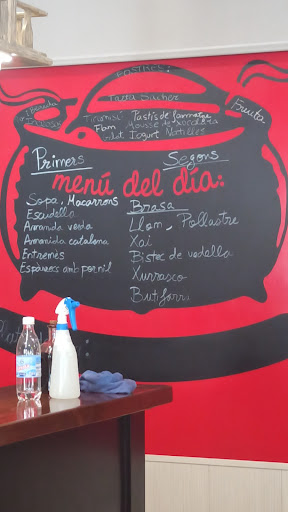 POSTRES:
Tarta Sacher
Tiramisú Pastís de formatge
Flam Mousse de Xocolata
Iogurt Natilles
Fruita
1 Beguda
Inclosa
Primers
Segons
menú del día:
Sopa, Macarrons
Escudella
Amanida verda
Amanida catalana
Entremès
Espàrrecs amb pernil
Brasa
Llom, Pollastre
Xai
Bistec de vedella
Xurrasco
Butifarra